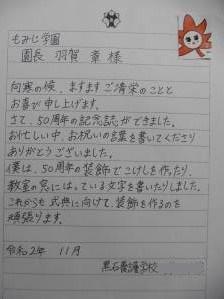 もみじ学園
園長 羽賀 章 様
向寒の候、ますますご清栄のことと
お喜び申し上げます。
さて、50周年の記念誌ができました。
お忙しい中、お祝いの言葉を書いてくださり
ありがとうございました。
僕は、50周年の装飾でこけしを作ったり、
教室の窓にはっている文字を書いたりしました。
これからも式典に向けて、装飾を作るのを
頑張ります。
令和2年 11月
黒石養護学校